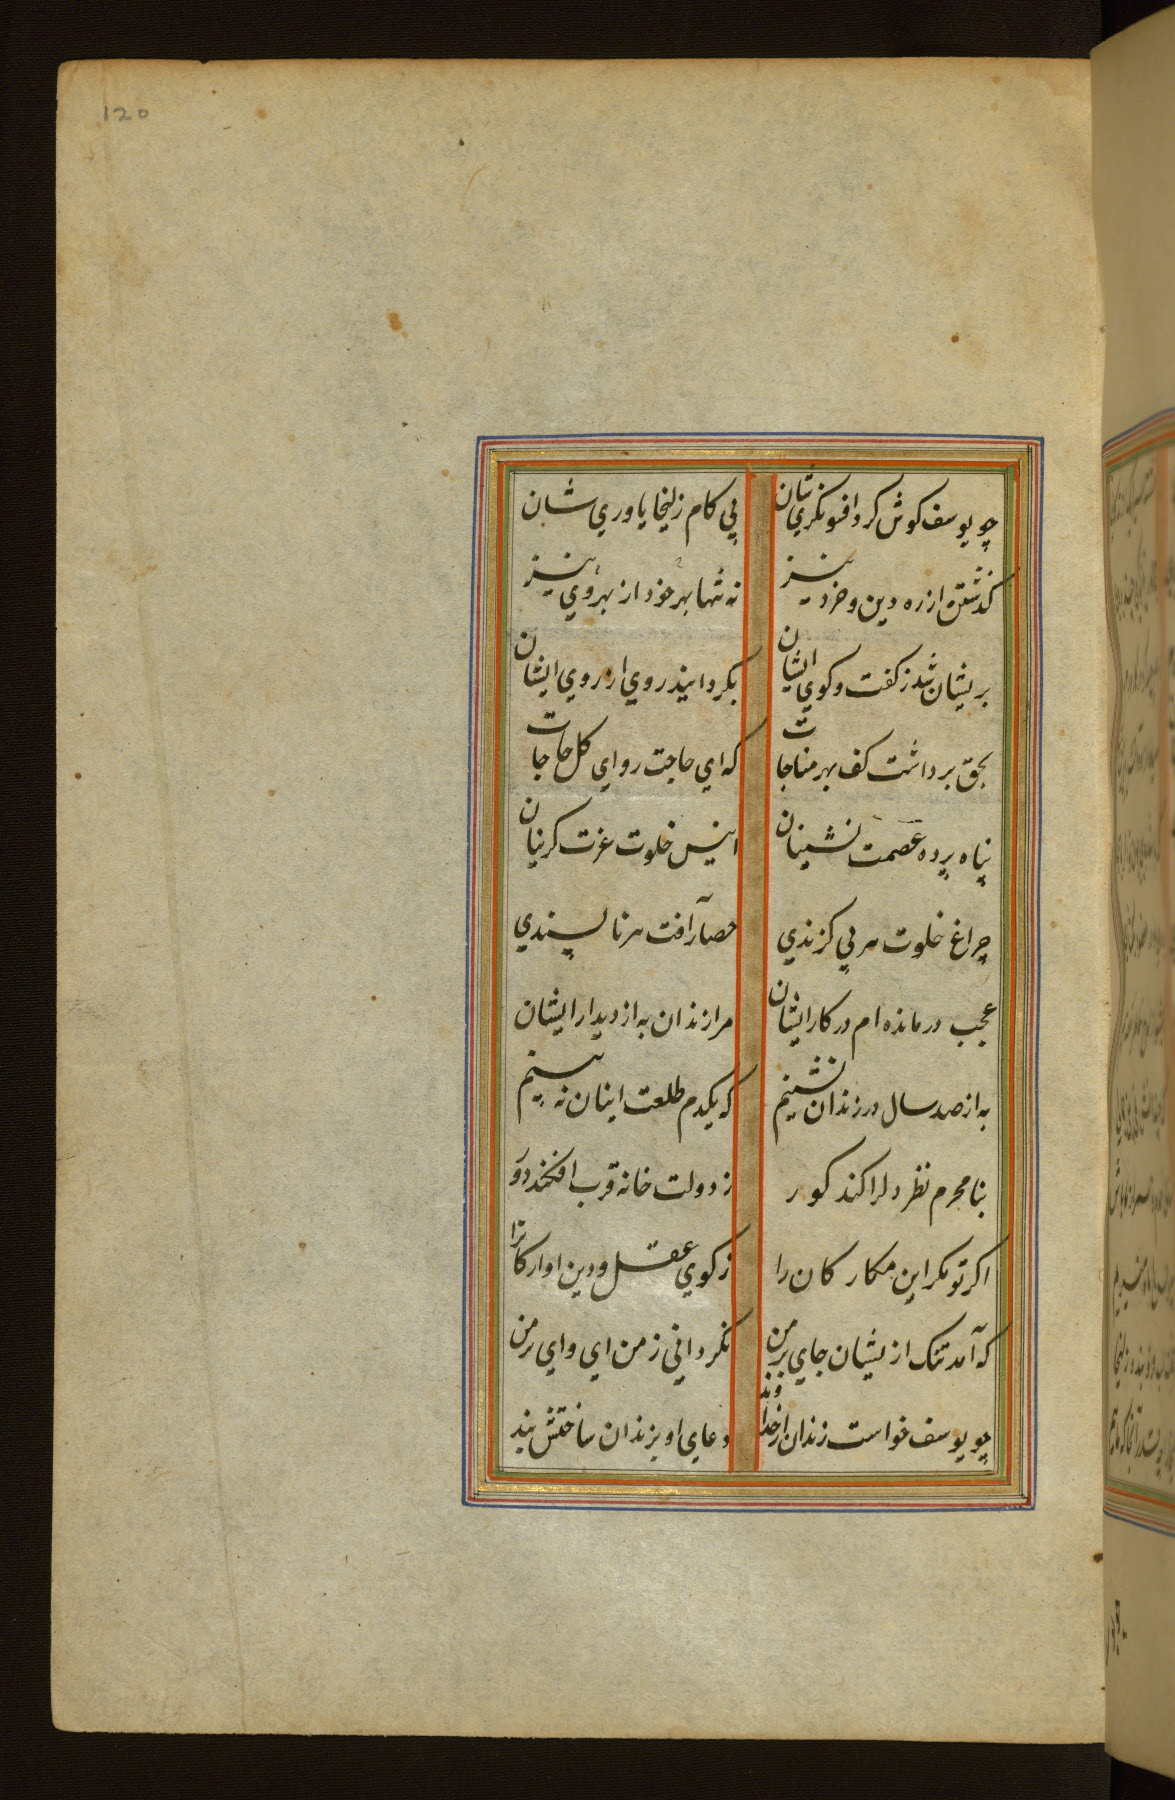 120
چو يوسف كوش كرد افسونكري شان پي كام زليخا ياوري شان
كذشتن از ره دين و خرد نيز نه تنها بهر خود از بهر وي نيز
پريشان شد ز كفت و كوي ايشان بكردانيد روي از روي ايشان
بحق برداشت كف بهر مناجات كه اي حاجت رواي كل حاجات
پناه پرده عصمت نشينان انيس خلوت عزت كزينان
چراغ خلوت هر بي كزندي حصار آفت هر ناپسندي
عجب درمانده ام در كار ايشان مرا زندان به از ديدار ايشان
به از صد سال در زندان نشينم كه يكدم طلعت اينان به بينم
بنامحرم نظر دلرا كند كور ز دولت خانه قرب افكند دور
اكر تو مكر اين مكاركان را ز كوي عقل و دين اواركانرا
كه آمد تنك ازيشان جاي بر من نكرداني ز من اي واي بر من
چو يوسف خواست زندان از خداوند دعاي او بزندان ساختش بند